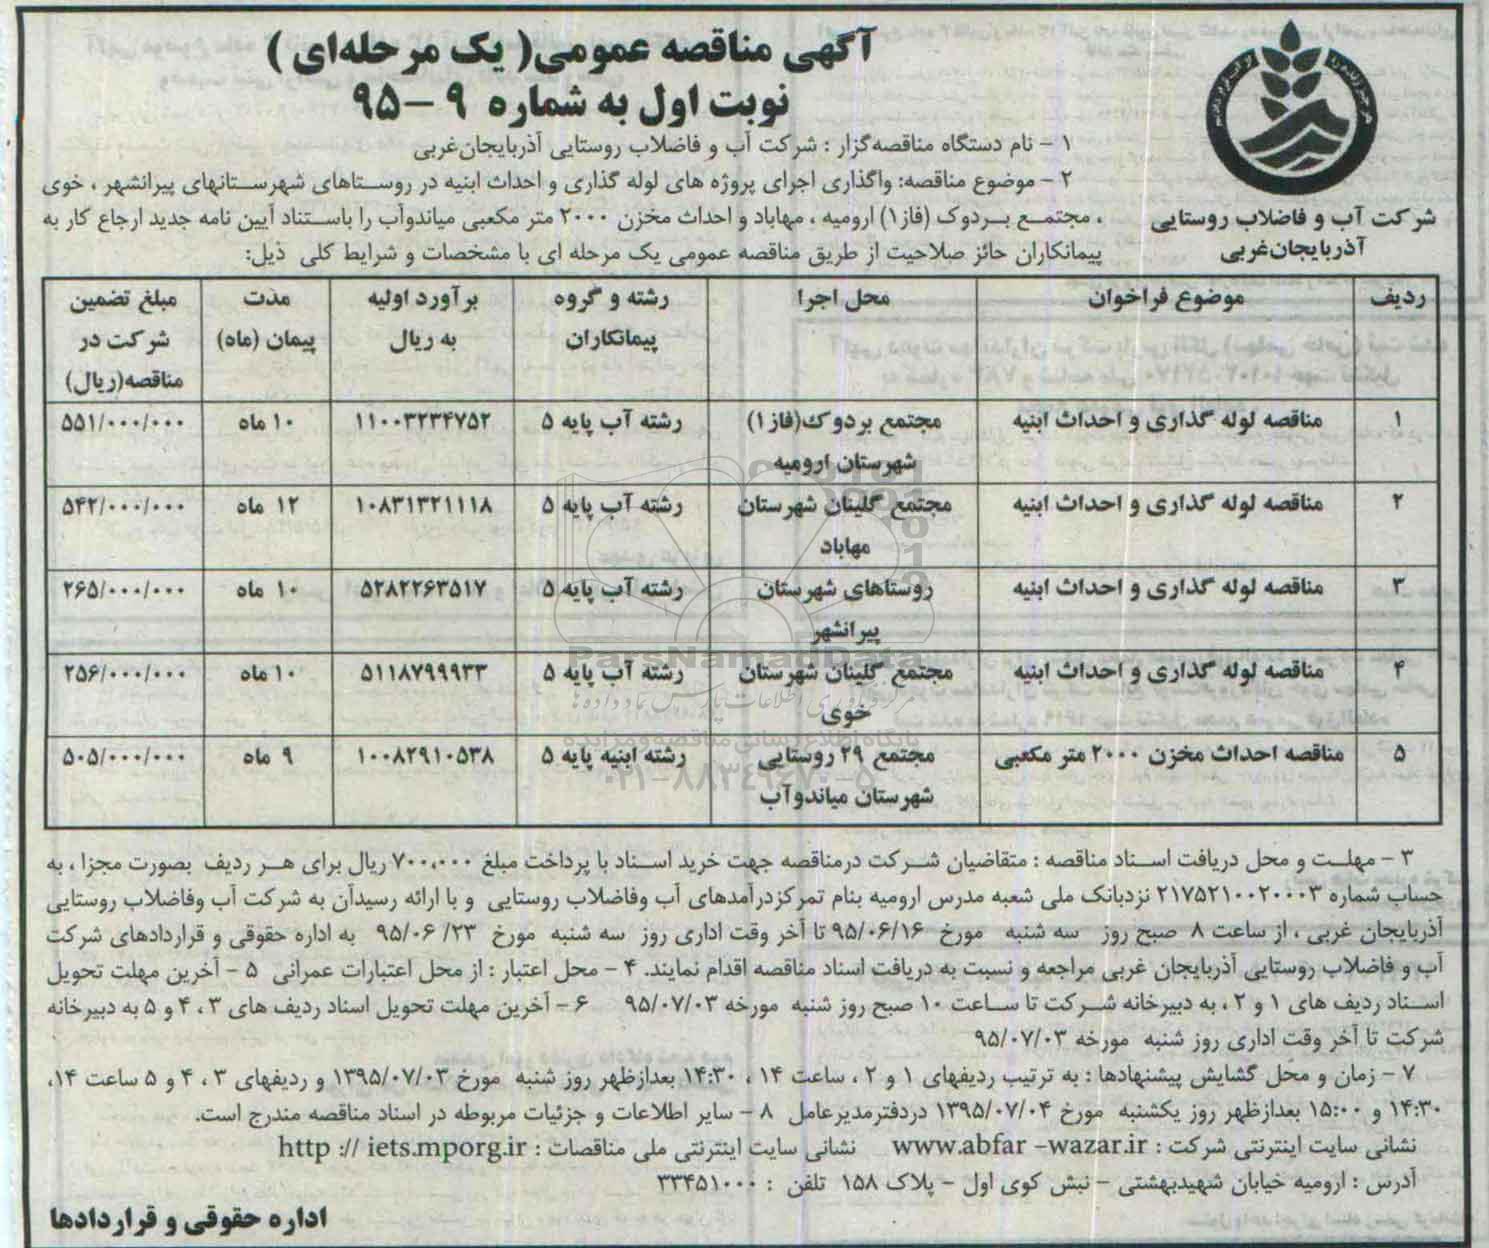 آگهی مناقصه عمومی( یک مرحله‌ای )
نوبت اول به شماره ۹ -۹۵
شرکت آب و فاضلاب روستایی
آذربایجان‌غربی
۱ - نام دستگاه مناقصه‌گزار : شرکت آب و فاضلاب روستایی آذربایجان‌غربی
۲ - موضوع مناقصه: واگذاری اجرای پروژه های لوله گذاری و احداث ابنیه در روستاهای شهرستانهای پیرانشهر ، خوی
، مجتمع بردوک (فاز۱) ارومیه ، مهاباد و احداث مخزن ۲۰۰۰ متر مکعبی میاندوآب را باستناد آیین نامه جدید ارجاع کار به
پیمانکاران حائز صلاحیت از طریق مناقصه عمومی یک مرحله ای با مشخصات و شرایط کلی ذیل:
ردیف موضوع فراخوان محل اجرا رشته و گروه پیمانکاران برآورد اولیه به ریال مدت پیمان (ماه) مبلغ تضمین شرکت در مناقصه(ریال)
۱ مناقصه لوله گذاری و احداث ابنیه مجتمع بردوک(فاز۱) شهرستان ارومیه رشته آب پایه ۵ ۱۱۰۰۳۲۳۴۷۵۲ ۱۰ ماه ۵۵۱/۰۰۰/۰۰۰
۲ مناقصه لوله گذاری و احداث ابنیه مجتمع گلینان شهرستان مهاباد رشته آب پایه ۵ ۱۰۸۳۱۳۲۱۱۱۸ ۱۲ ماه ۵۴۲/۰۰۰/۰۰۰
۳ مناقصه لوله گذاری و احداث ابنیه روستاهای شهرستان پیرانشهر رشته آب پایه ۵ ۵۲۸۲۲۶۳۵۱۷ ۱۰ ماه ۲۶۵/۰۰۰/۰۰۰
۴ مناقصه لوله گذاری و احداث ابنیه مجتمع گلینان شهرستان خوی رشته آب پایه ۵ ۵۱۱۸۷۹۹۹۳۳ ۱۰ ماه ۲۵۶/۰۰۰/۰۰۰
۵ مناقصه احداث مخزن ۲۰۰۰ متر مکعبی مجتمع ۲۹ روستایی شهرستان میاندوآب رشته ابنیه پایه ۵ ۱۰۰۸۲۹۱۰۵۳۸ ۹ ماه ۵۰۵/۰۰۰/۰۰۰
ParsNamadData
مرکز فرآوری اطلاعات پارس نماد داده ها
پایگاه اطلاع رسانی مناقصه و مزایده
۰۲۱-۸۸۳۴۹۶۷۰-۵
۳ - مهلت و محل دریافت اسناد مناقصه : متقاضیان شرکت درمناقصه جهت خرید اسناد با پرداخت مبلغ ۷۰۰،۰۰۰ ریال برای هر ردیف بصورت مجزا ، به
حساب شماره ۲۱۷۵۲۱۰۰۲۰۰۰۳ نزدبانک ملی شعبه مدرس ارومیه بنام تمرکزدرآمدهای آب وفاضلاب روستایی و با ارائه رسیدآن به شرکت آب وفاضلاب روستایی
آذربایجان غربی ، از ساعت ۸ صبح روز سه شنبه مورخ ۹۵/۰۶/۱۶ تا آخر وقت اداری روز سه شنبه مورخ ۲۳/ ۹۵/۰۶ به اداره حقوقی و قراردادهای شرکت
آب و فاضلاب روستایی آذربایجان غربی مراجعه و نسبت به دریافت اسناد مناقصه اقدام نمایند. ۴ - محل اعتبار : از محل اعتبارات عمرانی ۵ - آخرین مهلت تحویل
اسناد ردیف های ۱ و ۲ ، به دبیرخانه شرکت تا ساعت ۱۰ صبح روز شنبه مورخه ۹۵/۰۷/۰۳ ۶ - آخرین مهلت تحویل اسناد ردیف های ۳ ، ۴ و ۵ به دبیرخانه
شرکت تا آخر وقت اداری روز شنبه مورخه ۹۵/۰۷/۰۳
۷ - زمان و محل گشایش پیشنهادها : به ترتیب ردیفهای ۱ و ۲ ، ساعت ۱۴ ، ۱۴:۳۰ بعدازظهر روز شنبه مورخ ۱۳۹۵/۰۷/۰۳ و ردیفهای ۳ ، ۴ و ۵ ساعت ۱۴،
۱۴:۳۰ و ۱۵:۰۰ بعدازظهر روز یکشنبه مورخ ۱۳۹۵/۰۷/۰۴ دردفترمدیرعامل ۸ - سایر اطلاعات و جزئیات مربوطه در اسناد مناقصه مندرج است.
نشانی سایت اینترنتی شرکت : www.abfar -wazar.ir نشانی سایت اینترنتی ملی مناقصات : http :// iets.mporg.ir
آدرس : ارومیه خیابان شهیدبهشتی - نبش کوی اول - پلاک ۱۵۸ تلفن : ۳۳۴۵۱۰۰۰
اداره حقوقی و قراردادها